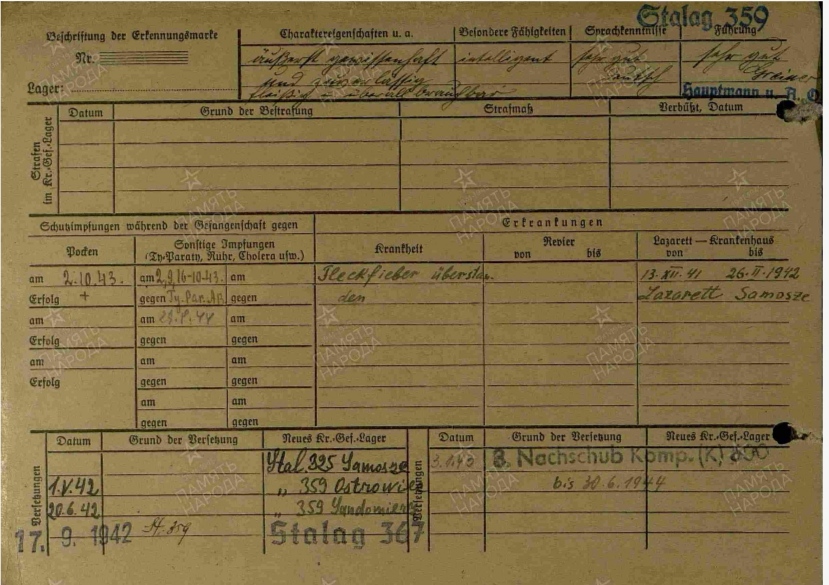 Stalag 359
Beschriftung der Erkennungsmarke
Nr.
Lager:
Charaktereigenschaften u. a.
Besondere Fähigkeiten
Sprachkenntnisse
Führung
äußerst gewissenhaft
und zuverlässig
fleißig u. überall brauchbar
intelligent
sehr gut
deutsch
sehr gut
Hauptmann u. A. O
Strafen
im Kr.-Gef.-Lager
Datum
Grund der Bestrafung
Strafmaß
Verbüßt, Datum
Schutzimpfungen während der Gefangenschaft gegen
Erkrankungen
Pocken
Sonstige Impfungen
(Ty-Paraty, Ruhr, Cholera usw.)
Krankheit
Revier
von bis
Lazarett — Krankenhaus
von bis
am 2.10.43. am 2,9,16-10.43. am
Fleckfieber überstan-
13.XII.41 26.II.1942
Erfolg + gegen Ty.Par.AB gegen
den
Lazarett Samosze
am am 44 am
Erfolg gegen gegen
am am am
Erfolg gegen gegen
am am
gegen gegen
Versetzungen
Datum
Grund der Versetzung
Neues Kr.-Gef.-Lager
Stal. 325 Samosze
1.V.42 " 359
20.6.42 " 359 Sandomierz
17. 9. 1942 St. 359 Stalag 367
Versetzungen
Datum
Grund der Versetzung
Neues Kr.-Gef.-Lager
3. Nachschub Komp. (K)
bis 30.6.1944
ПАМЯТЬ
НАРОДА